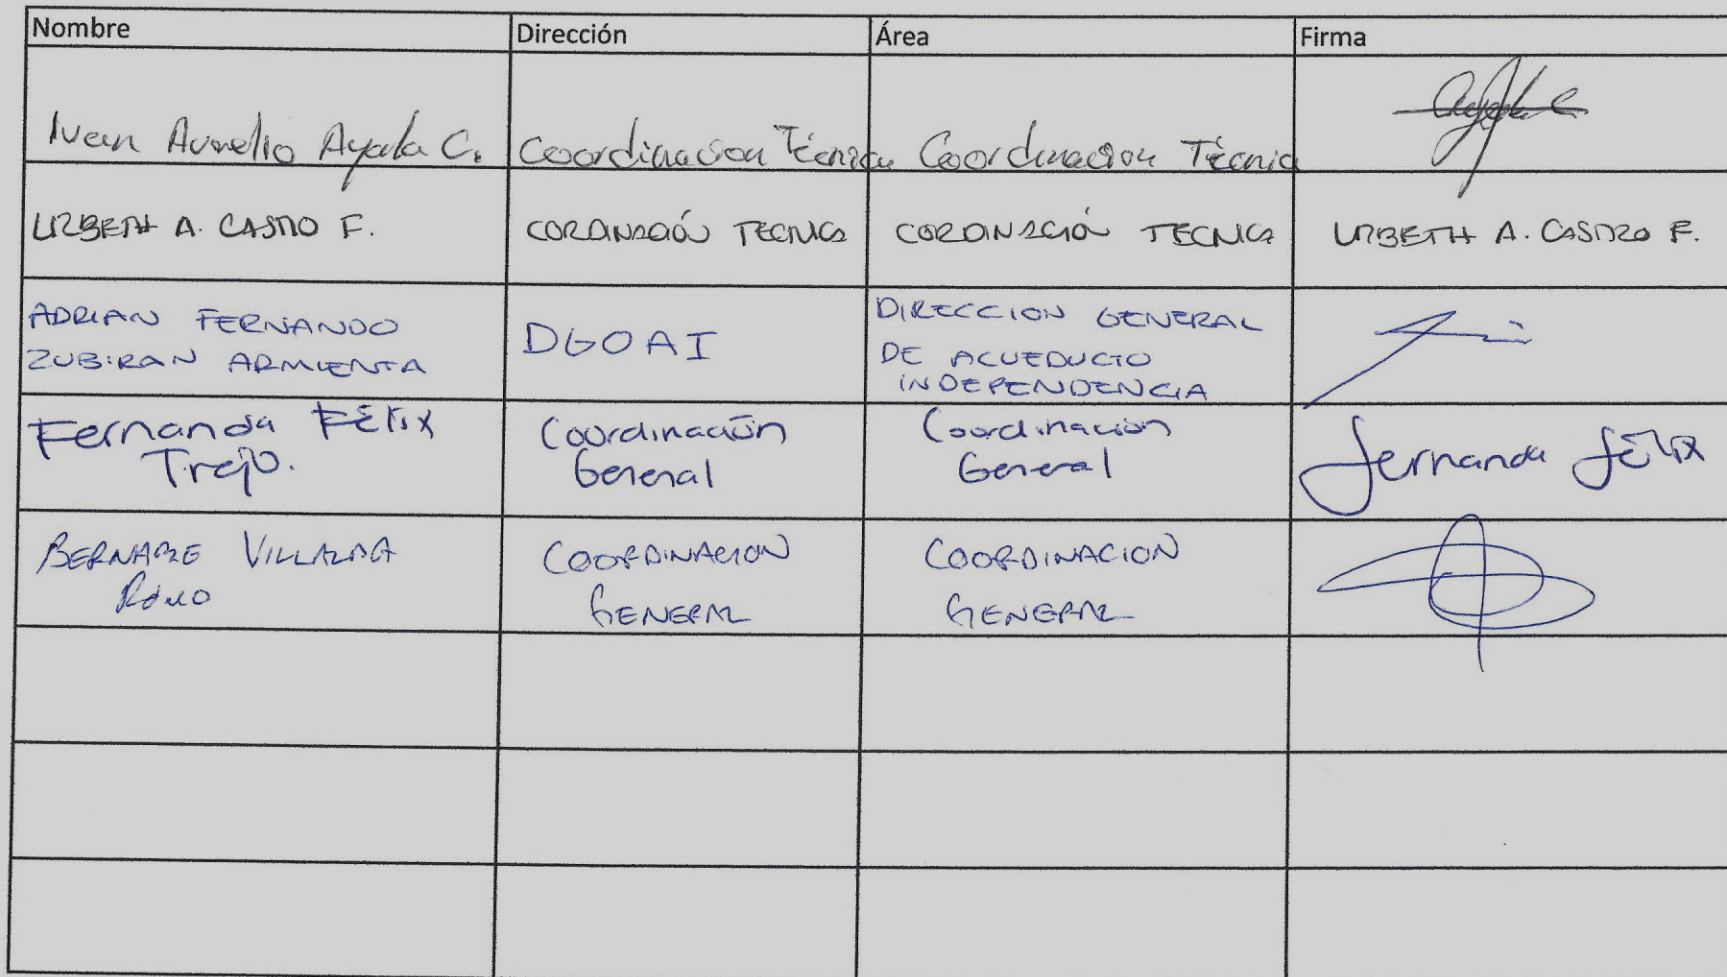 Nombre Dirección Área Firma
Ivan Aurelio Ayala C. Coordinacion Técnica Coordinacion Técnica
A. CASTRO F. CORDINACIÓN TECNICA CORDINACIÓN TECNICA A. CASTRO F.
ADRIAN FERNANDO
ZUBIRAN ARMIENTA
DGOAI
DIRECCION GENERAL
DE ACUEDUCTO
INDEPENDENCIA
Fernanda Félix
Trejo.
Coordinación
General
Coordinación
General
Fernanda Félix
COORDINACION
GENERAL
COORDINACION
GENERAL